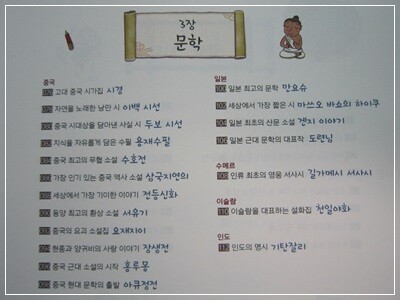 3장
문학
중국
고대 중국 시가집 시경
자연을 노래한 낭만 시 이백 시선
시대상을 담아낸 사실 시 두보 시선
지식을 자유롭게 담은 수필 용재수필
중국 최고의 무협 소설 수호전
가장 인기 있는 중국 역사 소설 삼국지연의
세상에서 가장 기이한 이야기 전등신화
동양 최고의 환상 소설 서유기
중국의 요괴 소설집 요재지이
현종과 양귀비의 사랑 이야기 장생전
중국 근대 소설의 시작 홍루몽
중국 현대 문학의 출발 아큐정전
일본
100 일본 최고의 문학 만요슈
102 세상에서 가장 짧은 시 마쓰오 바쇼의 하이쿠
104 일본 최초의 산문 소설 겐지 이야기
106 일본 근대 문학의 대표작 도련님
수메르
108 인류 최초의 영웅 서사시 길가메시 서사시
이슬람
110 이슬람을 대표하는 설화집 천일야화
인도
112 인도의 명시 기탄잘리